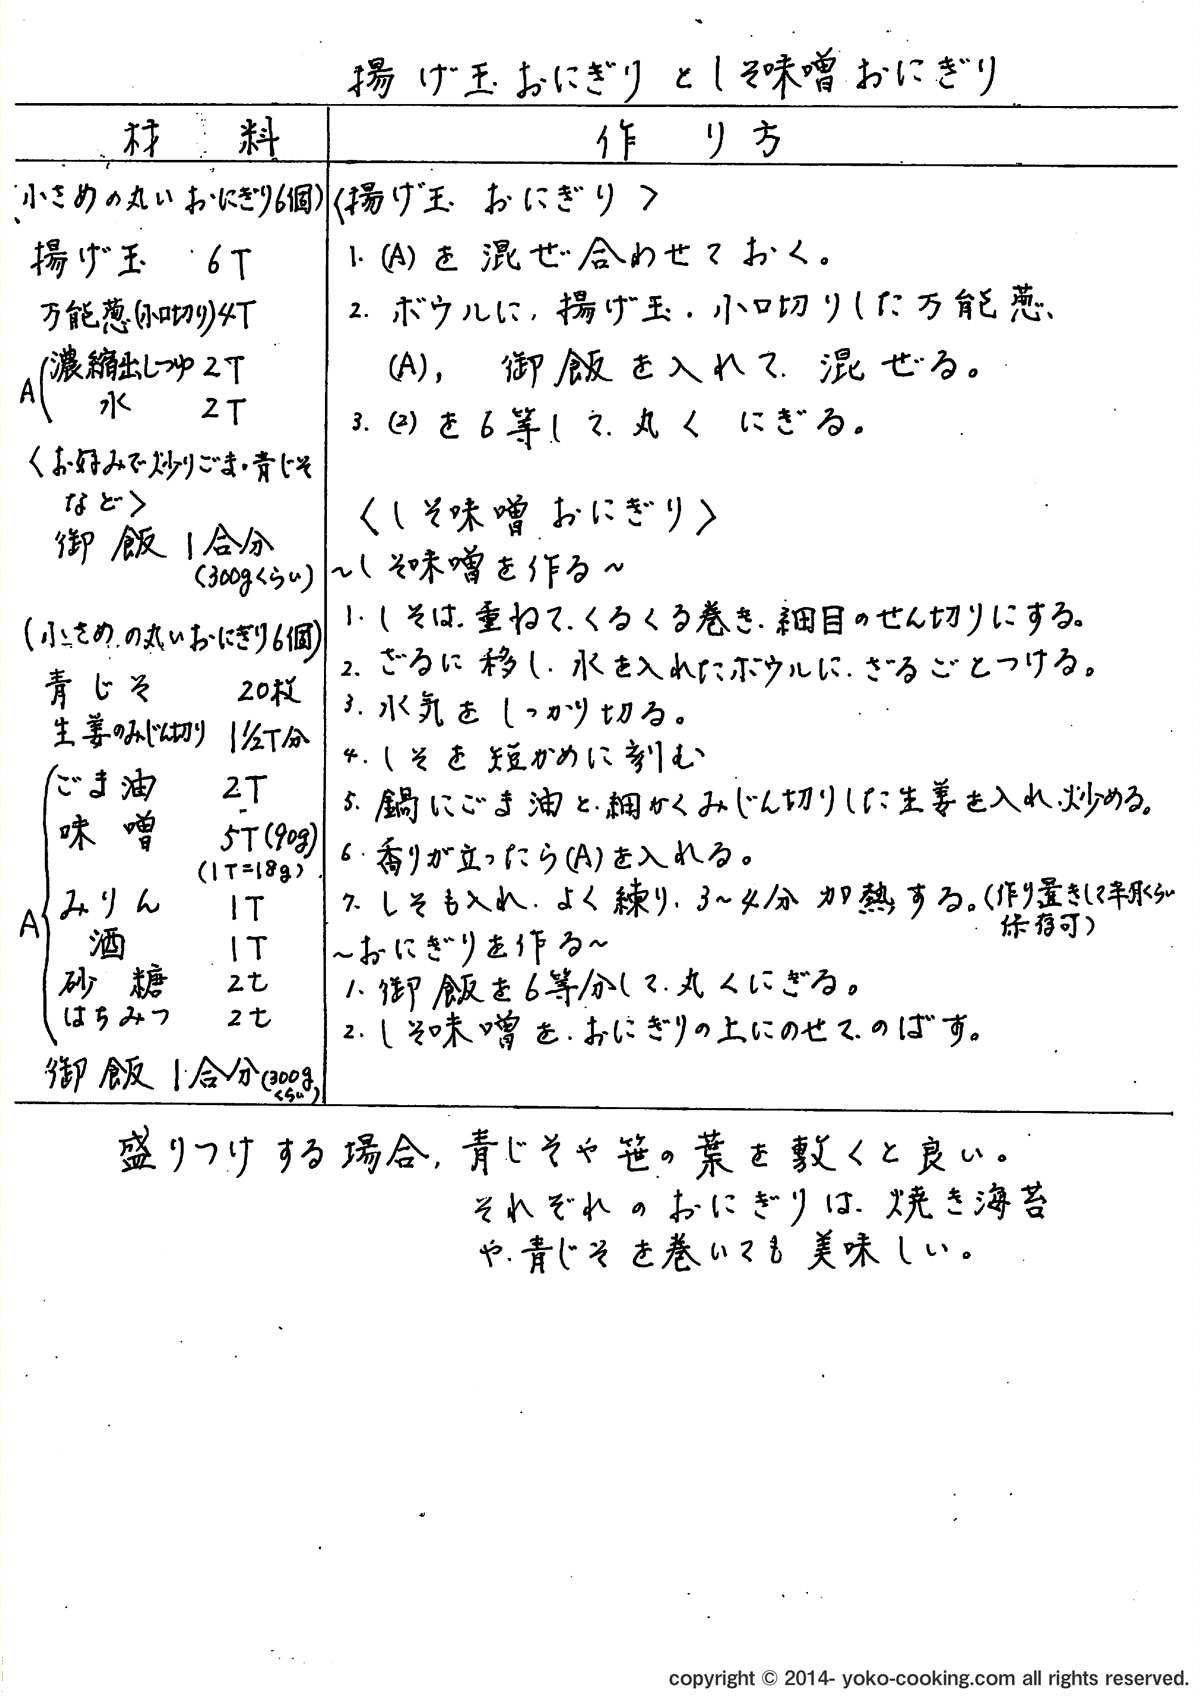 揚げ玉おにぎりとしそ味噌おにぎり
材 料
作 り 方
(小さめの丸いおにぎり6個)
揚げ玉 6T
万能葱(小口切り)4T
A
濃縮出しつゆ 2T
水 2T
〈お好みで炒りごま・青じそ
など〉
御飯 1合分
(300gくらい)
(小さめの丸いおにぎり6個)
青じそ 20枚
生姜のみじん切り 1 1/2T分
A
ごま油 2T
味噌 5T(90g)
(1T=18g)
みりん 1T
酒 1T
砂糖 2t
はちみつ 2t
御飯 1合分(300g
くらい)
〈揚げ玉 おにぎり〉
1. (A)を混ぜ合わせておく。
2. ボウルに、揚げ玉、小口切りした万能葱、
(A)、御飯を入れて、混ぜる。
3. (2)を6等して、丸くにぎる。
〈しそ味噌おにぎり〉
~しそ味噌を作る~
1. しそは、重ねて、くるくる巻き、細目のせん切りにする。
2. ざるに移し、水を入れたボウルに、ざるごとつける。
3. 水気をしっかり切る。
4. しそを短かめに刻む
5. 鍋にごま油と、細かくみじん切りした生姜を入れ、炒める。
6. 香りが立ったら(A)を入れる。
7. しそも入れ、よく練り、3~4分加熱する。(作り置きして半月くらい
保存可)
~おにぎりを作る~
1. 御飯を6等分して、丸くにぎる。
2. しそ味噌を、おにぎりの上にのせて、のばす。
盛りつけする場合、青じそや笹の葉を敷くと良い。
それぞれのおにぎりは、焼き海苔
や、青じそを巻いても美味しい。
copyright © 2014- yoko-cooking.com all rights reserved.